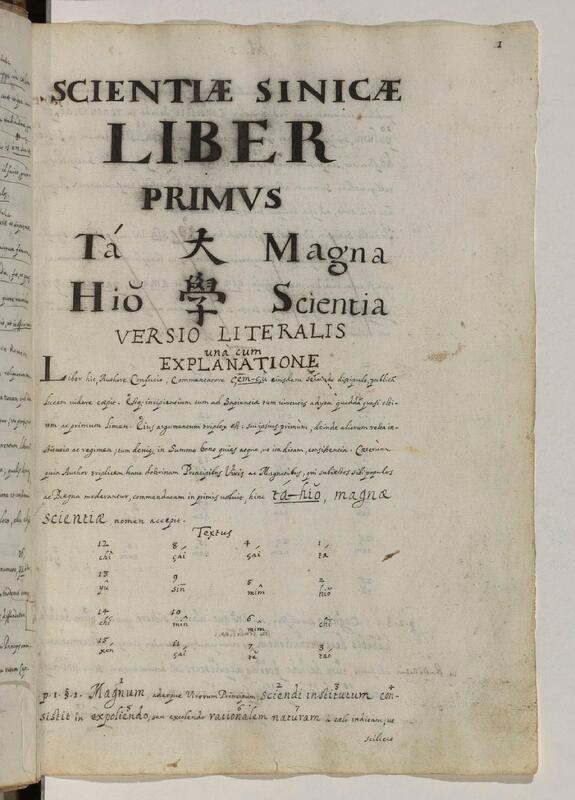 1
SCIENTIÆ SINICÆ
LIBER
PRIMVS
Tá 大 Magna
Hiŏ 學 Scientia
VERSIO LITERALIS
unà cum
EXPLANATIONE
Liber hic, Authore Confucio, Commentatore çem-çu ejusdem discipulo, publicã
lucem videre coepit. Estq; incipientium tum ad Sapientiã tum virtutis adyta quoddã quasi ostium
ac primum limen. Ejus argumentum triplex est: sui ipsius primùm, deinde aliorum recta institutio
ac regimen, tum deniq; in Summo bono quies atque, ut ita dicam, consistentia. Caeterùm
quia Author triplicem hanc doctrinam Principibus Viris ac Magnatibus, qui subiectos sibi populos
ac Regna moderantur, commendatam in primis voluit, hinc tá-hiŏ, magnæ
scientiæ nomen accepit.
Textus
12 8 4 1
chì çái çái tá
13 9 5 2
yũ sin̄ mîm hiŏ
14 10 6
chì mîn mim chī
15 11 7 3
xén çái tĕ táo
p. 1. §. 1. Magnum adeoque Virorum Principum, sciendi institutum con-
sistit in expoliendo, seu excolendo rationalem naturam à coelo inditam, ut
scilicet